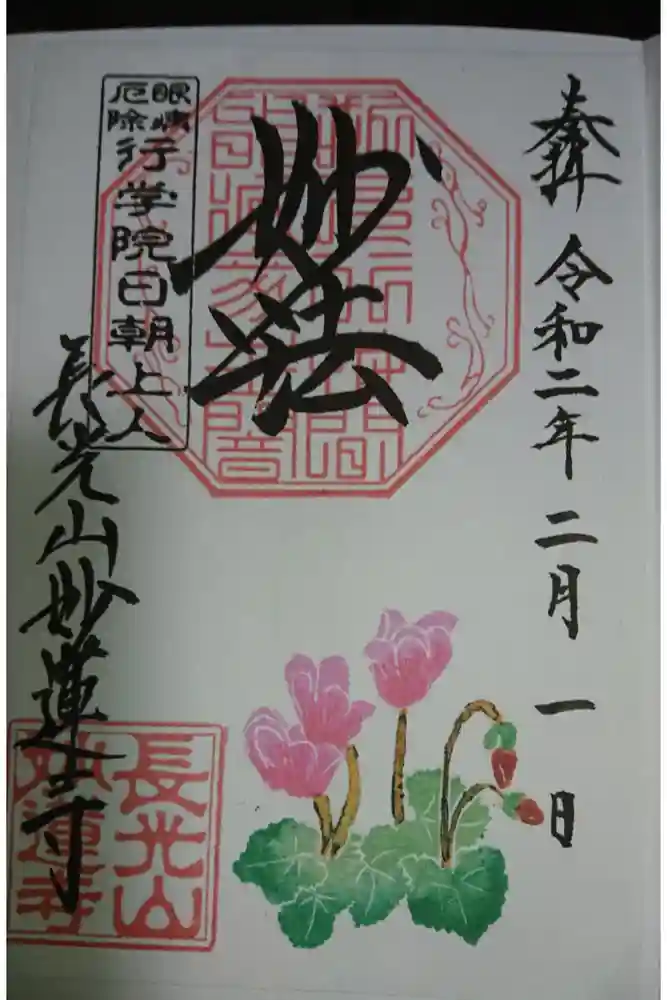 奉拝 令和二年 二月 一日
妙法
眼病
厄除
行学院日朝上人
長光山妙蓮寺
長光山
妙蓮寺